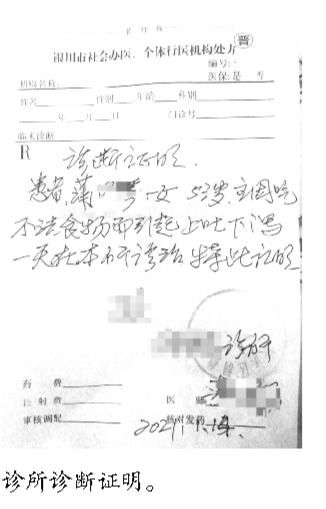 银川市社会办医、个体行医机构处方 普
编号:
机构名称: 医保:是 否
姓名 性别 年龄 科别
年 月 日 门诊号
临床诊断
R 诊断证明.
患者,蒲 女 5岁,主因吃
不洁食物而引起上吐下泻
一天在本所诊治 特此证明
诊所
药 费
注 射 费 医 师
审核调配 核对发药
2021.1
诊所诊断证明。